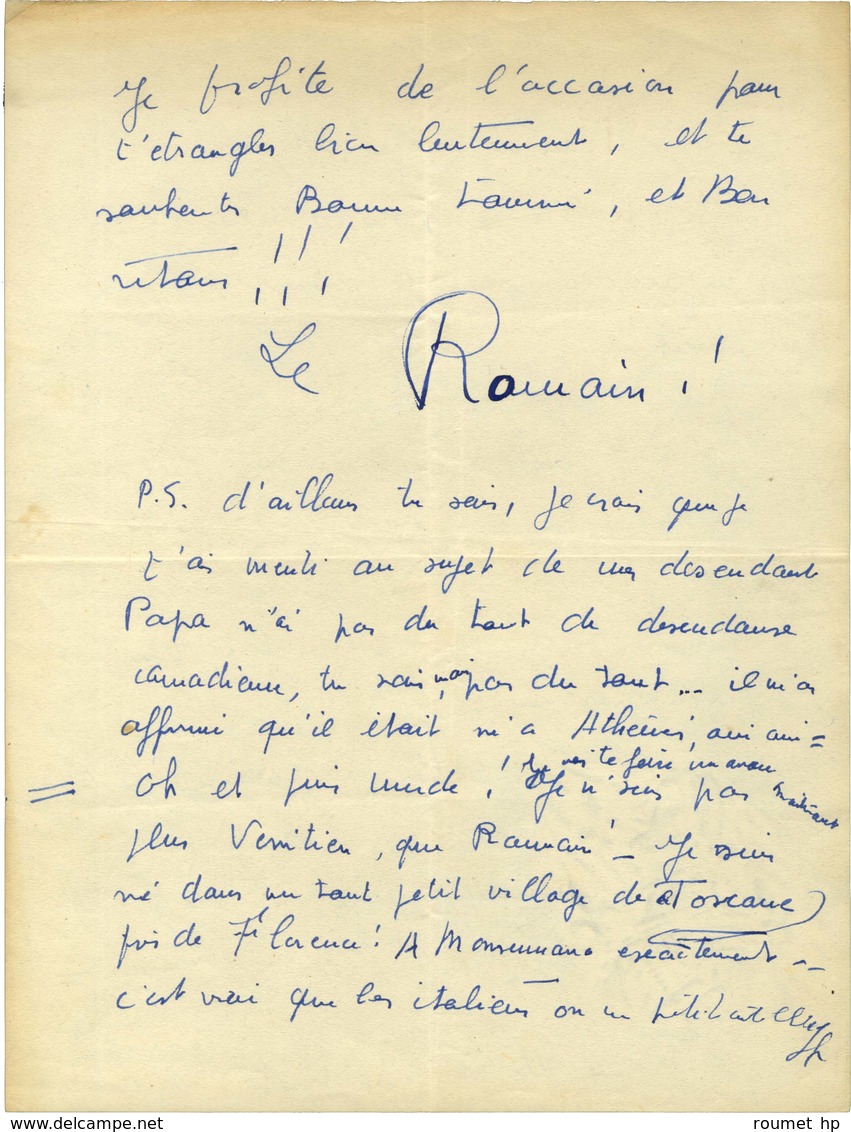 Je profite de l'occasion pour
t'étrangler bien lentement, et te
souhaiter Bonne tournée, et Bon
retour !!!
Le Romain !
P.S. d'ailleurs tu sais, je crois que je
t'ai menti au sujet de mes desendant
Papa n'ai pas du tout de desendanse
canadienne, tu sais, mais pas du tout... il m'a
affirmé qu'il était né a Athènes, oui oui =
= Oh et puis merde ! Je vais te faire un aveu maintenant
Je n'suis pas
plus Venitien, que Romain ! _ Je suis
né dans un tout petit village de Toscane
près de Florence ! A Monsummano exactement --
c'est vrai que les italiens on un petit coté